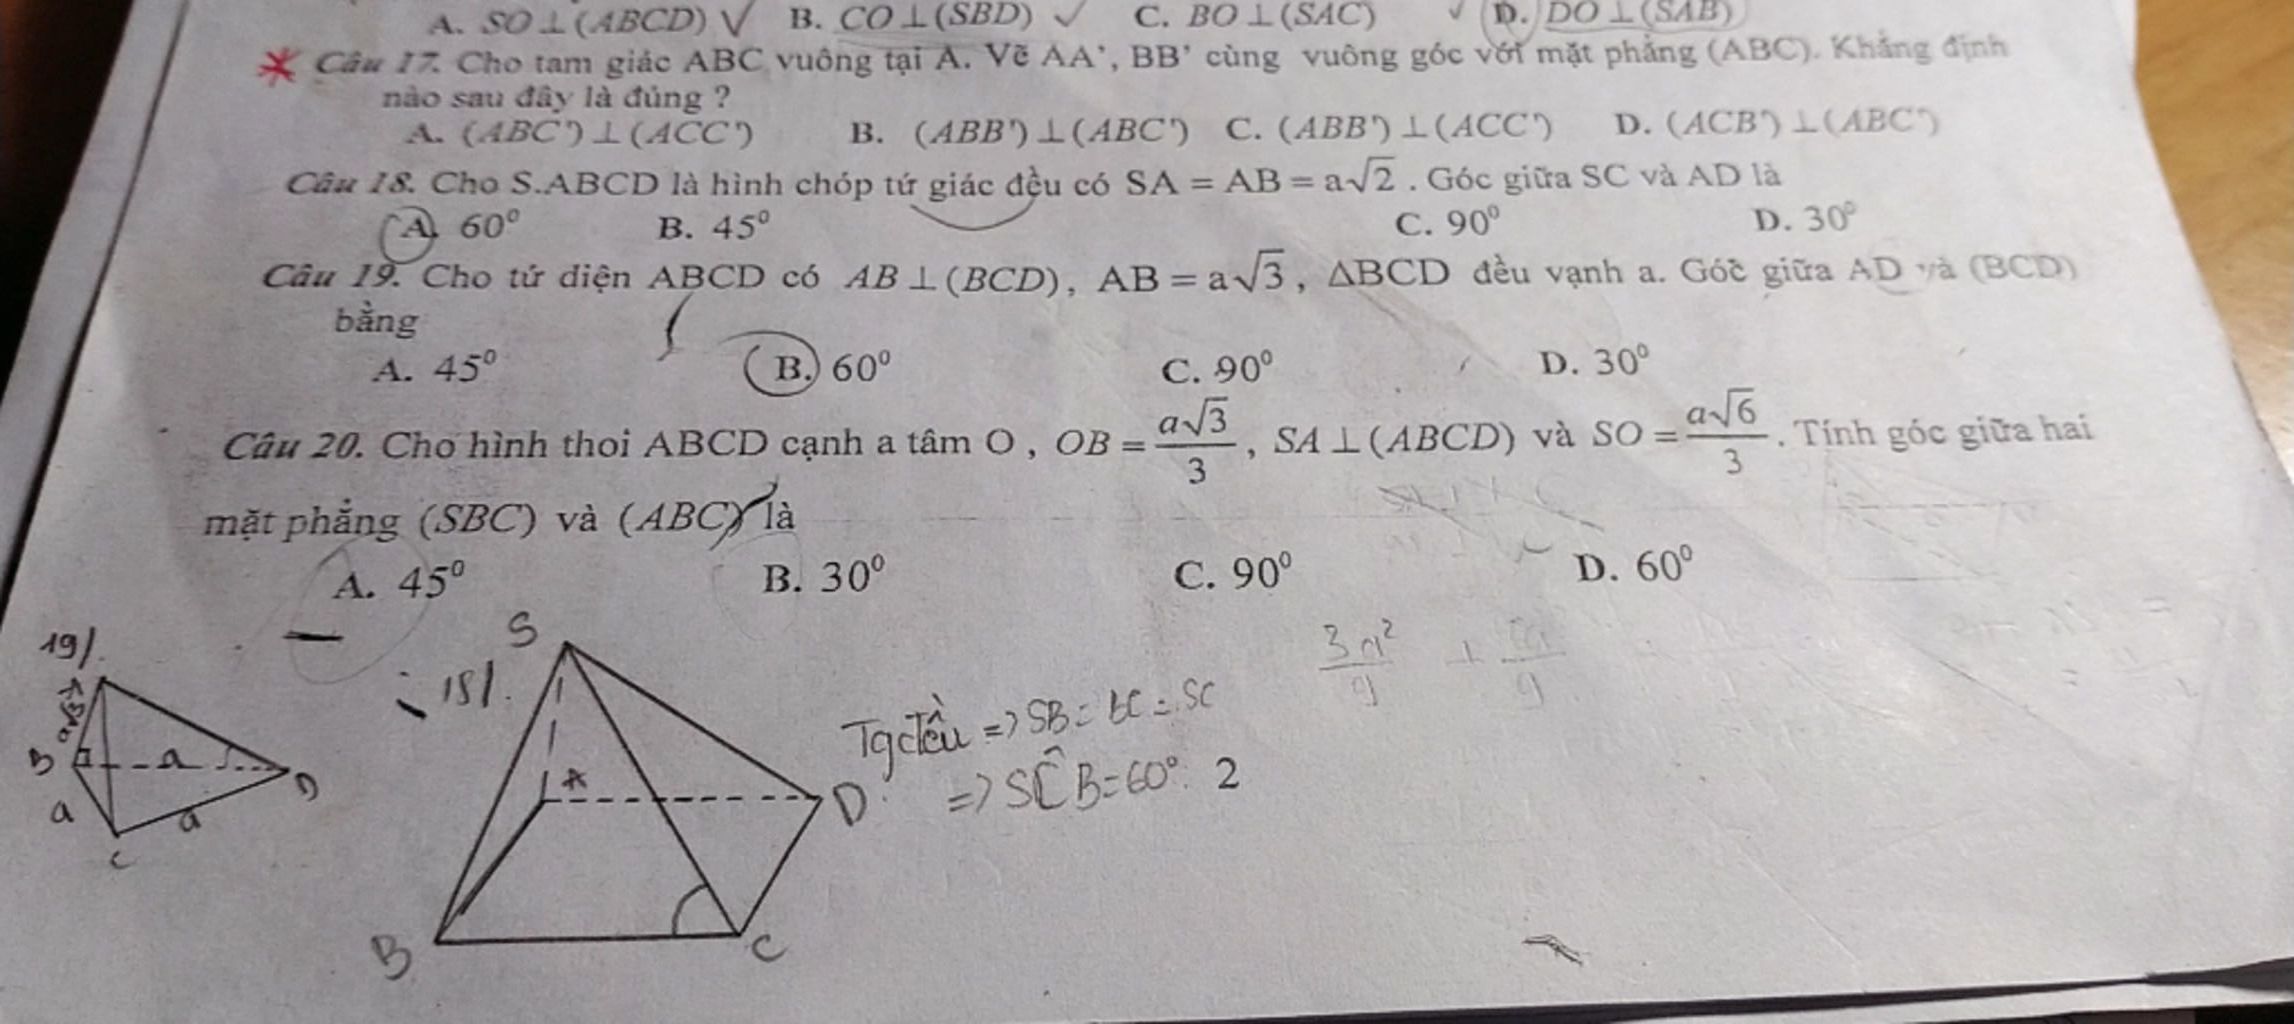 A. SO ⊥ (ABCD) √ B. CO ⊥ (SBD) ✓ C. BO ⊥ (SAC) ✓ D. DO ⊥ (SAB)
Câu 17. Cho tam giác ABC vuông tại A. Vẽ AA', BB' cùng vuông góc với mặt phẳng (ABC). Khẳng định
nào sau đây là đúng ?
A. (ABC') ⊥ (ACC') B. (ABB') ⊥ (ABC') C. (ABB') ⊥ (ACC') D. (ACB') ⊥ (ABC')
Câu 18. Cho S.ABCD là hình chóp tứ giác đều có SA = AB = a√2 . Góc giữa SC và AD là
A. 60⁰ B. 45⁰ C. 90⁰ D. 30⁰
Câu 19. Cho tứ diện ABCD có AB ⊥ (BCD), AB = a√3, ΔBCD đều vạnh a. Góc giữa AD và (BCD)
bằng
A. 45⁰ B. 60⁰ C. 90⁰ D. 30⁰
Câu 20. Cho hình thoi ABCD cạnh a tâm O , OB = a√3/3, SA ⊥ (ABCD) và SO = a√6/3. Tính góc giữa hai
mặt phẳng (SBC) và (ABC) là
A. 45⁰ B. 30⁰ C. 90⁰ D. 60⁰
19/.
a√3
B a D
a a
C
18/.
S
A D
B C
Tgđều => SB = BC = SC
=> SĈB = 60⁰. 2
3a²/9 +